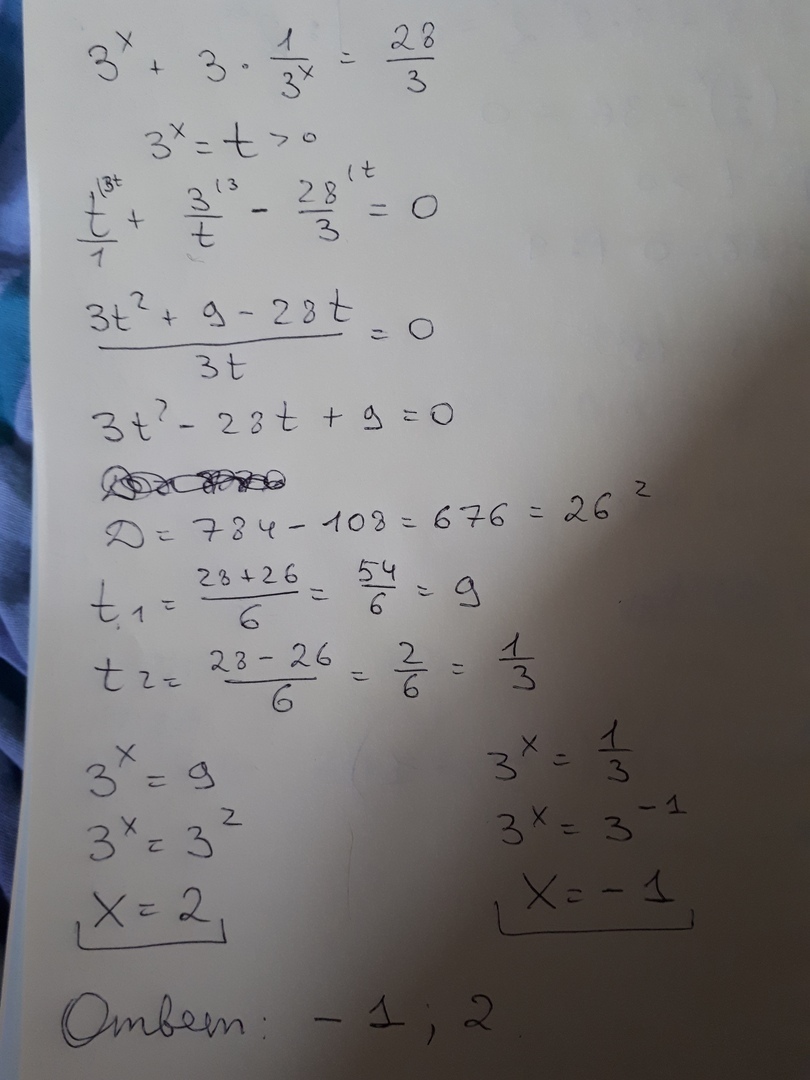 3^x + 3 · 1/3^x = 28/3
3^x = t > 0
t/1 (3t + 3/t (3 - 28/3 (t = 0
(3t² + 9 - 28t)/3t = 0
3t² - 28t + 9 = 0
D = 784 - 108 = 676 = 26²
t₁ = (28+26)/6 = 54/6 = 9
t₂ = (28-26)/6 = 2/6 = 1/3
3^x = 9
3^x = 3²
x = 2
3^x = 1/3
3^x = 3^-1
x = -1
Ответ: -1; 2